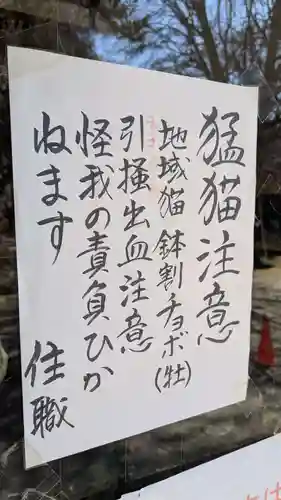 猛猫注意
地域猫 鉢割・チョボ(牡)
引掻出血注意
怪我の責負ひか
ねます
住職